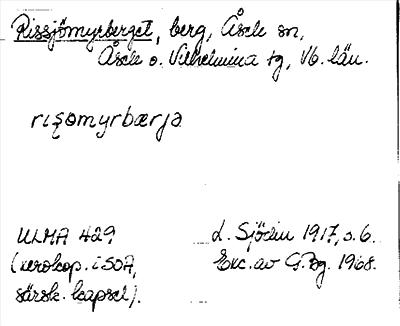 Rissjömyrberget, berg, Åsele sn,
Åsele o. Vilhelmina tg, Vb. län.
rişømyrbærjə
ULMA 429 L. Sjödin 1917, s. 6.
(xerokop. i SOA, Exc. av G. Bg. 1968.
särsk. kapsel).